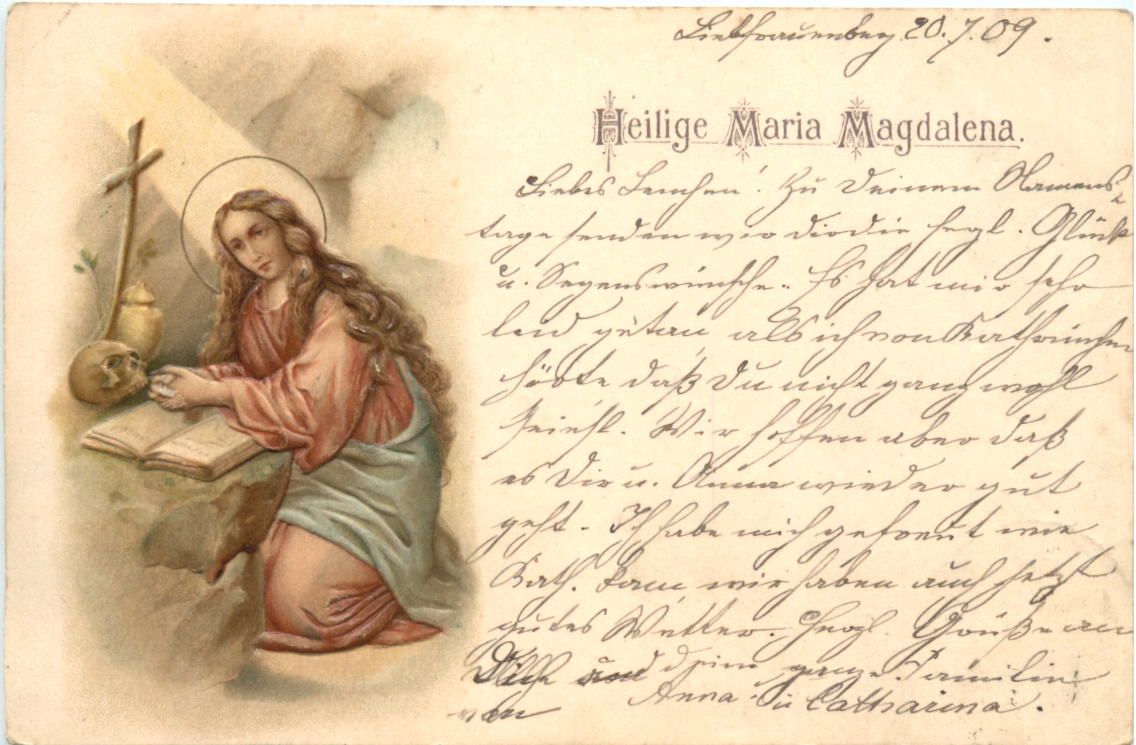 Liebfrauenberg 20.7.09.
Heilige Maria Magdalena.
Liebes Lenchen! Zu Deinem Namens-
tage senden wir dir die herzl. Glück
u. Segenswünsche. Es hat mir sehr
leid getan als ich von Kathrinchen
hörte daß Du nicht ganz wohl
seiest. Wir hoffen aber daß
es Dir u. Anna wieder gut
geht. Ich habe mich gefreut wie
Kath. kam wir haben auch jetzt
gutes Wetter. Herzl. Grüße an
Dich und deine ganze Familie
von Anna u Catharina.